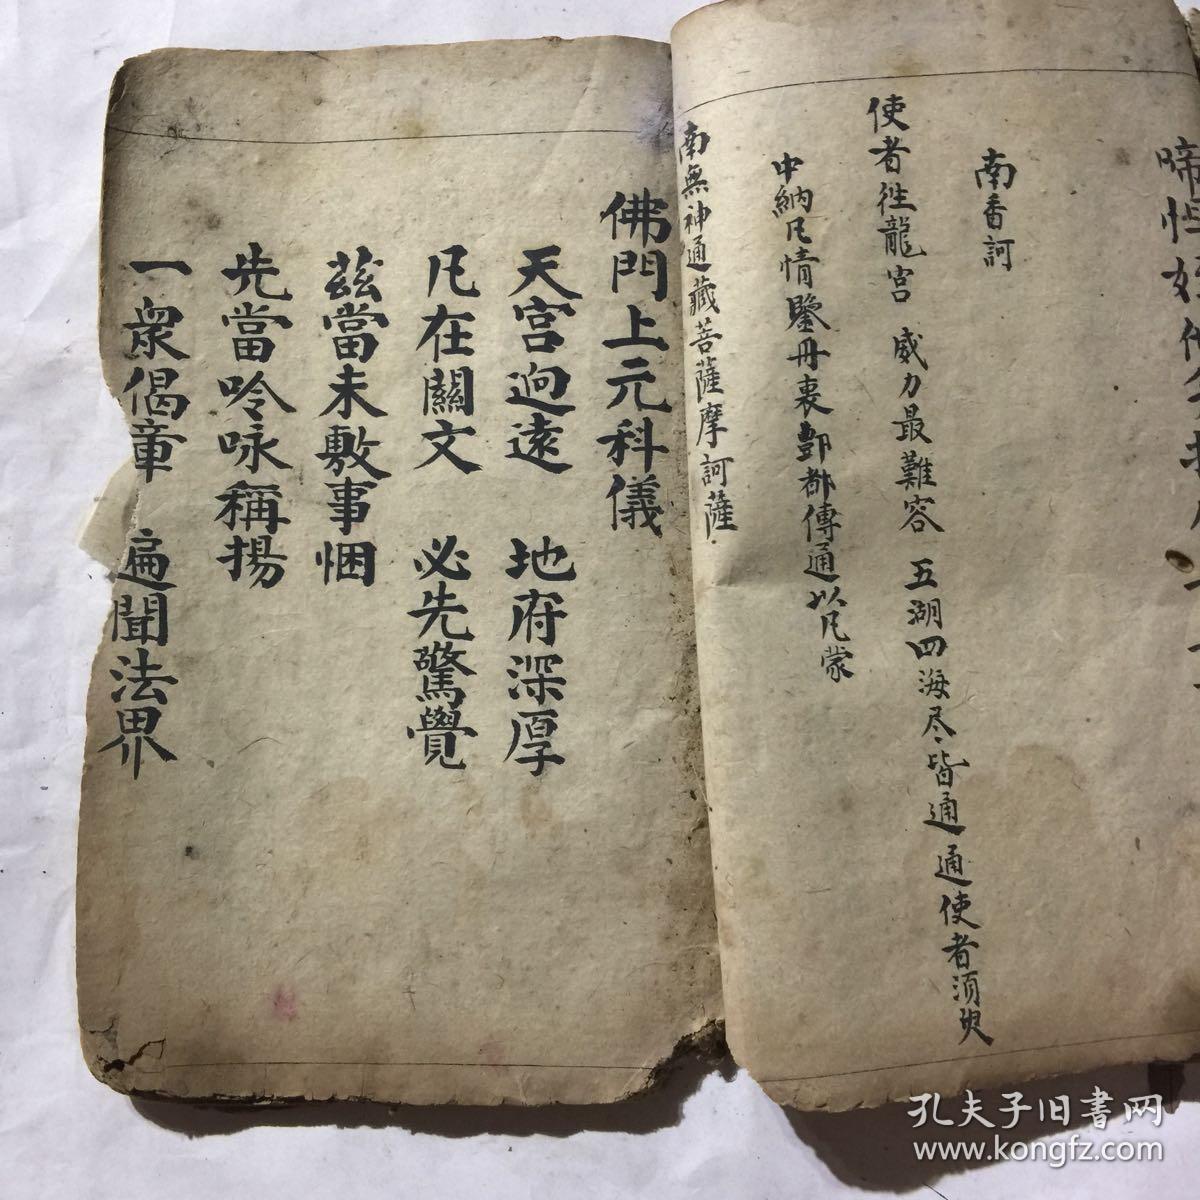 南香訶
使者徃龍宮 威力最難容 五湖四海尽皆通 通使者須臾
中納凡情鑒丹衷酆都傳通以凡蒙
南無神通藏菩薩摩訶薩
佛門上元科儀
天宮迥遠 地府深厚
凡在關文 必先驚覺
茲當未敷事悃
先當唥咏稱揚
一衆偈章 遍聞法界
孔夫子旧書网
www.kongfz.com